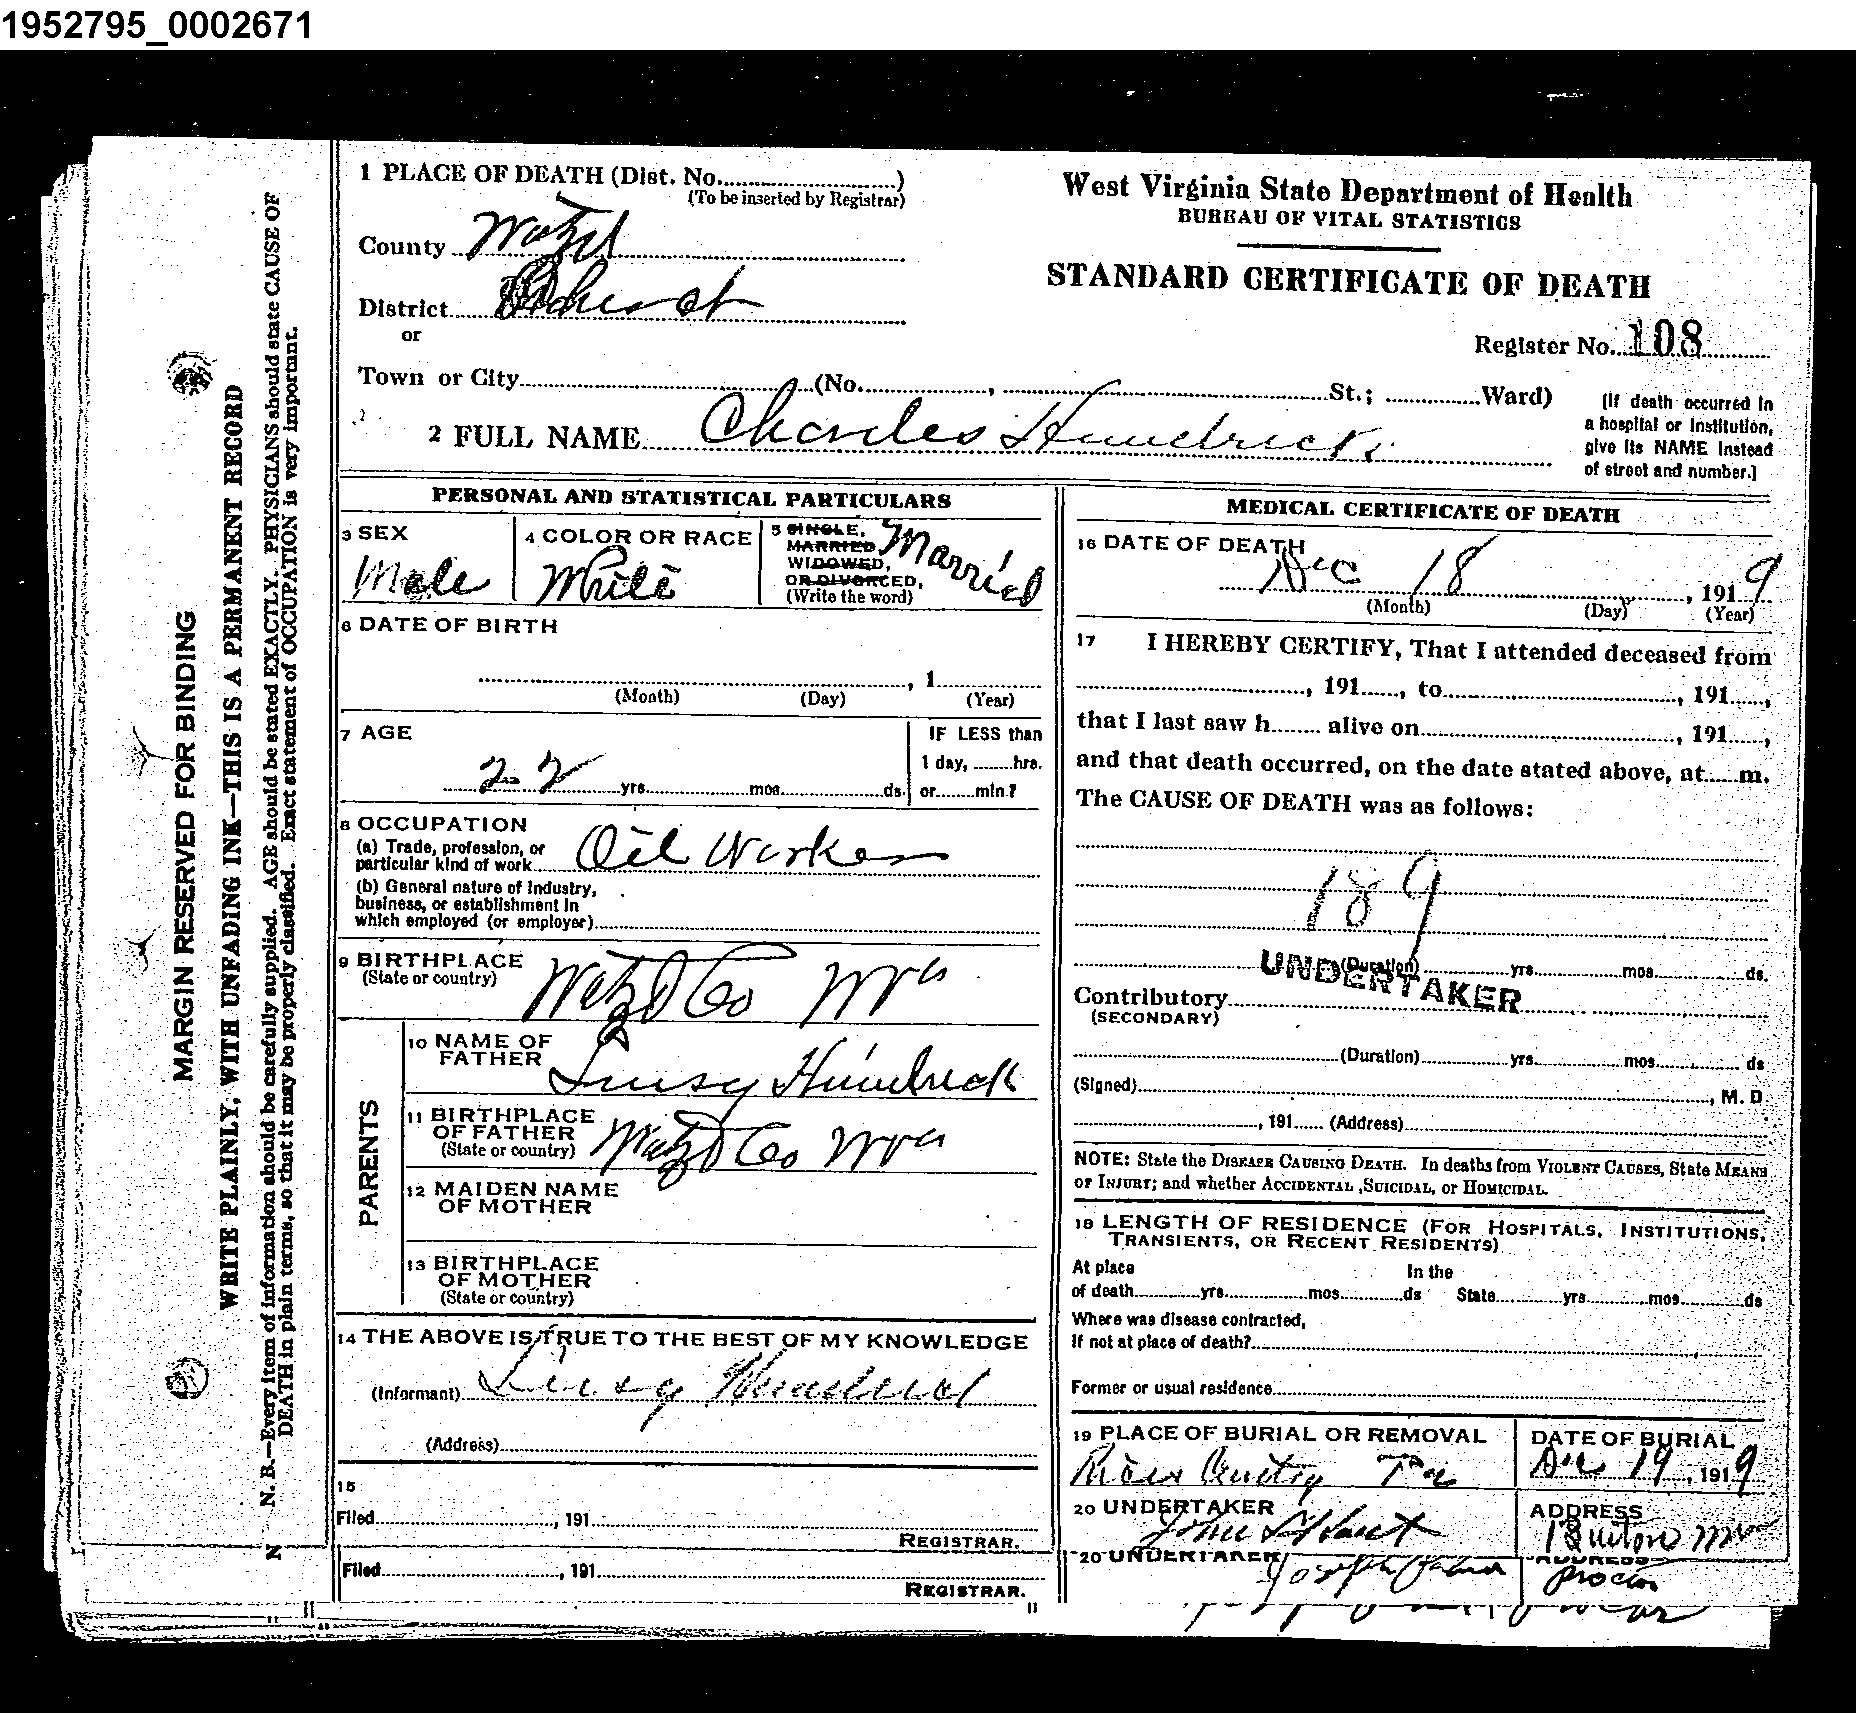 1952795_0002671
1 PLACE OF DEATH (Dist. No.
(To be inserted by Registrar)
County Wetzel
District
or
Town or City (No. , St.; Ward)
2 FULL NAME Charles Hendricks
West Virginia State Department of Health
BUREAU OF VITAL STATISTICS
STANDARD CERTIFICATE OF DEATH
Register No. 108
(If death occurred in
a hospital or institution,
give its NAME instead
of street and number.]
MARGIN RESERVED FOR BINDING
WRITE PLAINLY, WITH UNFADING INK—THIS IS A PERMANENT RECORD
N. B.—Every item of information should be carefully supplied. AGE should be stated EXACTLY. PHYSICIANS should state CAUSE OF
DEATH in plain terms, so that it may be properly classified. Exact statement of OCCUPATION is very important.
N
PERSONAL AND STATISTICAL PARTICULARS
3 SEX
Male
4 COLOR OR RACE
White
5 SINGLE,
MARRIED,
WIDOWED,
OR DIVORCED,
(Write the word)
Married
6 DATE OF BIRTH
, 1
(Month) (Day) (Year)
7 AGE
22 yrs. mos. ds.
IF LESS than
1 day, hrs.
or min?
8 OCCUPATION
(a) Trade, profession, or
particular kind of work Oil Worker
(b) General nature of industry,
business, or establishment in
which employed (or employer)
9 BIRTHPLACE
(State or country) Wetzel Co WVa
PARENTS
10 NAME OF
FATHER
11 BIRTHPLACE
OF FATHER
(State or country) Wetzel Co WVa
12 MAIDEN NAME
OF MOTHER
13 BIRTHPLACE
OF MOTHER
(State or country)
14 THE ABOVE IS TRUE TO THE BEST OF MY KNOWLEDGE
(Informant)
(Address)
15
Filed , 191
REGISTRAR.
Filed , 191
REGISTRAR.
11
MEDICAL CERTIFICATE OF DEATH
16 DATE OF DEATH
Dec 18 , 1919
(Month) (Day) (Year)
17 I HEREBY CERTIFY, That I attended deceased from
, 191 , to , 191 ,
that I last saw h alive on , 191 ,
and that death occurred, on the date stated above, at m.
The CAUSE OF DEATH was as follows:
189
(Duration) yrs. mos. ds.
UNDERTAKER
Contributory
(SECONDARY)
(Duration) yrs. mos. ds
(Signed) , M. D.
, 191 (Address)
NOTE: State the DISEASE CAUSING DEATH. In deaths from VIOLENT CAUSES, State MEANS
OF INJURY; and whether ACCIDENTAL ,SUICIDAL, or HOMICIDAL.
18 LENGTH OF RESIDENCE (FOR HOSPITALS, INSTITUTIONS,
TRANSIENTS, OR RECENT RESIDENTS)
At place In the
of death yrs. mos. ds State yrs. mos. ds
Where was disease contracted,
If not at place of death?
Former or usual residence
19 PLACE OF BURIAL OR REMOVAL
DATE OF BURIAL
Dec 19 , 1919
20 UNDERTAKER
John
ADDRESS
Burton
20 UNDERTAKER
Joseph
ADDRESS
Proctor